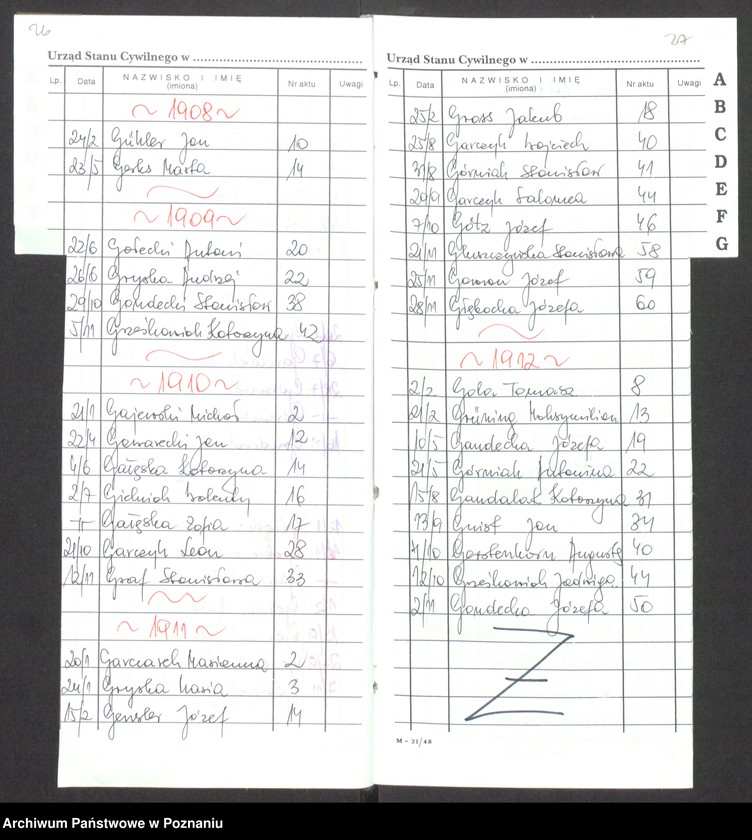 26
Urząd Stanu Cywilnego w
Lp. Data NAZWISKO I IMIĘ (imiona) Nr aktu Uwagi
~ 1908 ~
24/2 Gühler Jan 10
23/5 Gerks Marta 14
~ 1909 ~
22/6 Gołecki Antoni 20
26/6 Gryska Andrzej 22
29/10 Gandecki Stanisław 38
5/11 Grześkowiak Katarzyna 42
~ 1910 ~
21/1 Gajewski Michał 2
22/4 Gawarecki Jan 12
4/6 Gałęska Katarzyna 14
2/7 Gidniak Walenty 16
-"- Gałęska Zofia 17
21/10 Garczyk Leon 28
12/11 Graf Stanisława 33
~ 1911 ~
20/1 Garczarek Marianna 2
24/1 Gryska Kasia 3
15/2 Gensler Józef 14
27
Urząd Stanu Cywilnego w
Lp. Data NAZWISKO I IMIĘ (imiona) Nr aktu Uwagi
25/2 Gross Jakub 18
25/8 Garczyk Wojciech 40
31/8 Górniak Stanisław 41
29/9 Garczyk Salomea 44
7/10 Götz Józef 46
21/11 Głuszczyńska Stanisława 58
25/11 Gawron Józef 59
28/11 Głębocka Józefa 60
~ 1912 ~
2/2 Gola Tomasz 8
21/2 Grüning Maksymilian 13
10/5 Gandecka Józefa 19
21/5 Górniak Antonina 22
15/8 Gandalak Katarzyna 31
13/9 Gnist Jan 34
4/10 Gerstenkorn Augusta 40
12/10 Grześkowiak Jadwiga 44
2/11 Gandecka Józefa 50
M - 21/48
A
B
C
D
E
F
G
Archiwum Państwowe w Poznaniu